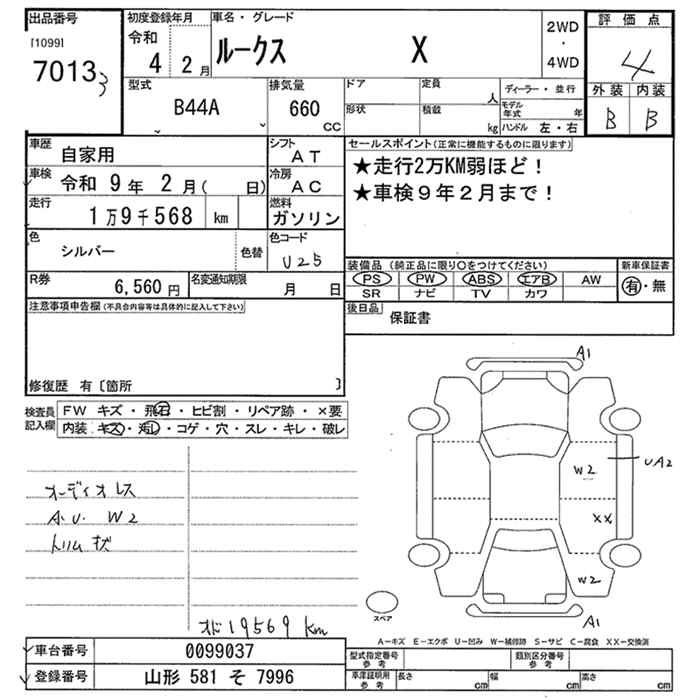 出品番号
[1099]
7013
初度登録年月
令和
4 2月
車名・グレード
ルークス X
2WD
・
4WD
評価点
4
外装 内装
B B
型式
B44A
排気量
660
CC
ドア
形状
定員
人
積載
kg
ディーラー・並行
モデル年式 年
ハンドル 左・右
車歴
自家用
シフト
AT
車検
令和 9年 2月( 日)
冷房
AC
走行
1万9千568 km
燃料
ガソリン
色
シルバー
色替
色コード
U25
R券
6,560円
名変通知期限
月 日
セールスポイント(正常に機能するものに限ります)
★走行2万KM弱ほど!
★車検9年2月まで!
装備品 (純正品に限り○をつけてください)
新車保証書
PS PW ABS エアB AW
SR ナビ TV カワ
有・無
後日品
保証書
注意事項申告欄(不具合内容等は具体的に記入して下さい)
修復歴 有〔箇所 〕
検査員
記入欄
FW キズ・飛石・ヒビ割・リペア跡・×要
内装 キズ・汚レ・コゲ・穴・スレ・キレ・破レ
オーディオレス
A.U. W2
トリムキズ
オド19569km
A1
UA2
W2
XX
W2
A1
スペア
A-キズ E-エクボ U-凹み W-補修跡 S-サビ C-腐食 XX-交換済
車台番号
0099037
登録番号
山形 581 そ 7996
型式指定番号
参考
類別区分番号
参考
車庫証明用
参考
長さ cm
幅 cm
高さ cm